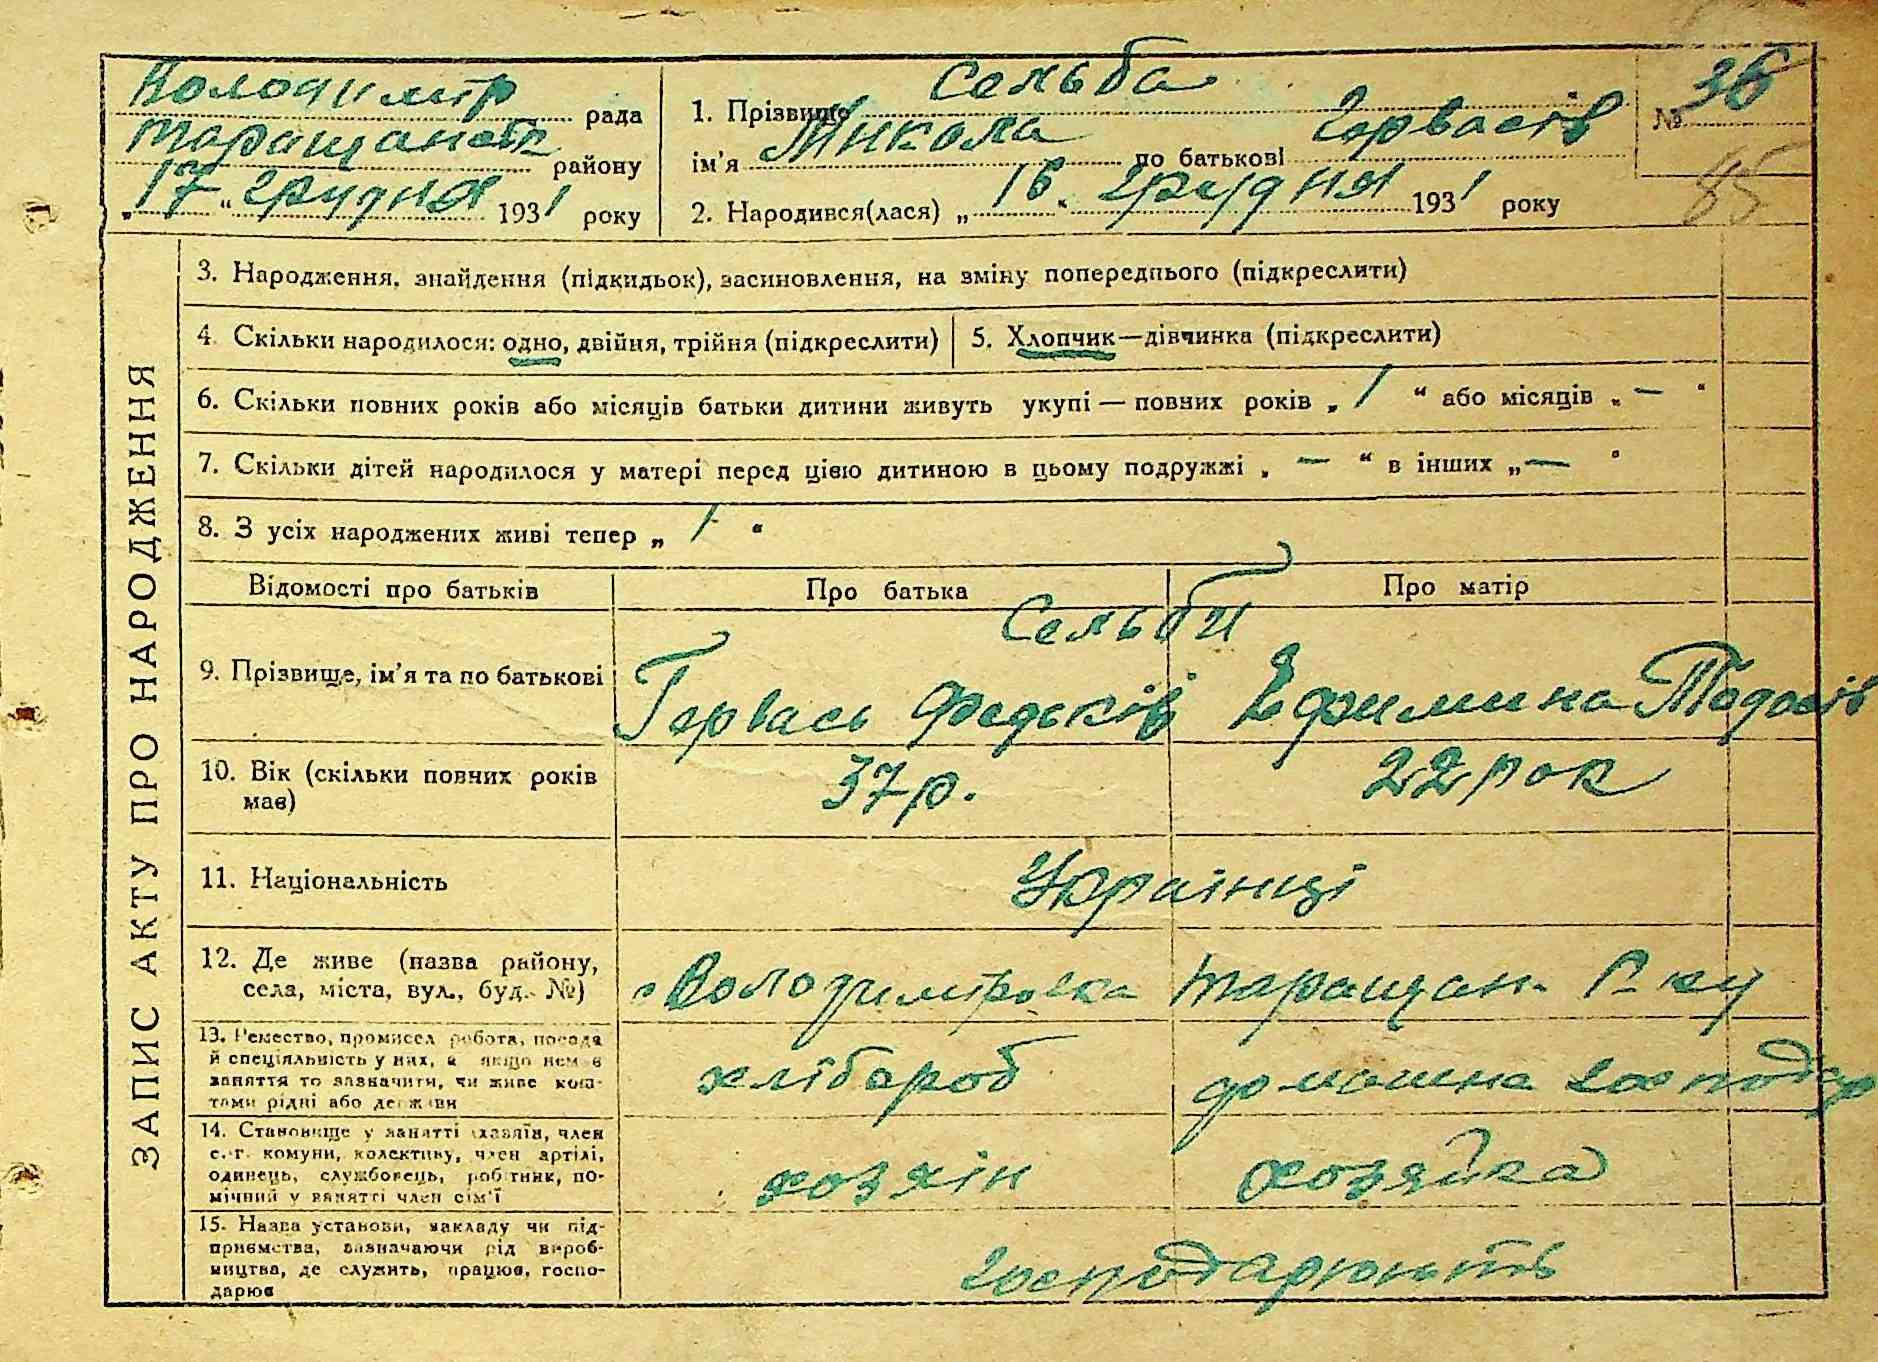 Володимир рада
Таращанськ району
„17“ грудня 1931 року
1. Прізвище Сельба
ім'я Микола по батькові Гервасів
2. Народився(лася) „16“ грудня 1931 року
№ 36
85
ЗАПИС АКТУ ПРО НАРОДЖЕННЯ
3. Народження, знайдення (підкидьок), засиновлення, на зміну попереднього (підкреслити)
4. Скільки народилося: одно, двійня, трійня (підкреслити)
5. Хлопчик—дівчинка (підкреслити)
6. Скільки повних років або місяців батьки дитини живуть укупі — повних років „1“ або місяців „—“
7. Скільки дітей народилося у матері перед цією дитиною в цьому подружжі „—“ в інших „—“
8. З усіх народжених живі тепер „1“
Відомості про батьків Про батька Про матір
Сельби
9. Прізвище, ім'я та по батькові Гервась Федьків Ефримина Тодосів
10. Вік (скільки повних років 37 р. 22 рок
має)
11. Національність Українці
12. Де живе (назва району, с Володимировка Таращан. Р-ку
села, міста, вул., буд. №)
13. Ремество, промисел робота, посада
й спеціяльність у них, а якщо немає
заняття то зазначити, чи живе кош-
тами рідні або держави
хлібороб домашна господар
14. Становище у занятті (хазяїн, член
с.-г. комуни, колективу, член артілі,
одинець, службовець, робітник, по-
мічний у занятті член сім'ї
хозяїн хозяйка
15. Назва установи, закладу чи під-
приємства, зазначаючи рід вироб-
ництва, де служить, працює, госпо-
дарює
господарюють